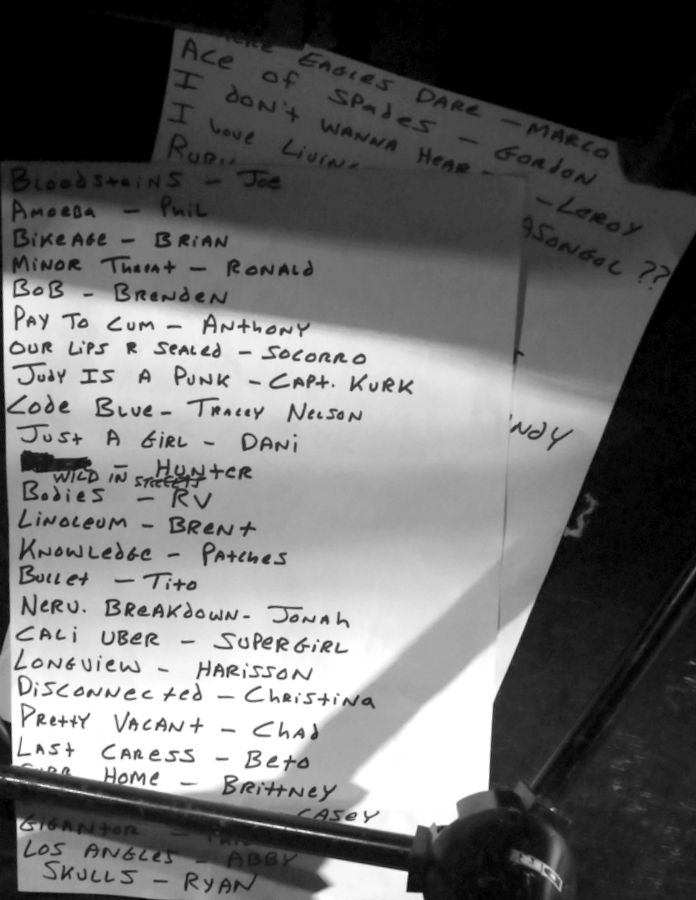 EAGLES DARE - MARCO
ACE OF SPADES - GORDON
I DON'T WANNA HEAR - LEROY
I LOVE LIVIN ASONGOL ??
NDY
BLOODSTAINS - JOE
AMOEBA - PHIL
BIKEAGE - BRIAN
MINOR THREAT - RONALD
BOB - BRENDEN
PAY TO CUM - ANTHONY
OUR LIPS R SEALED - SOCORRO
JUDY IS A PUNK - CAPT. KURK
CODE BLUE - TRACEY NELSON
JUST A GIRL - DANI
- HUNTER
WILD IN STREETS
BODIES - RV
LINOLEUM - BRENT
KNOWLEDGE - PATCHES
BULLET - TITO
NERV. BREAKDOWN - JONAH
CALI UBER - SUPERGIRL
LONGVIEW - HARISSON
DISCONNECTED - CHRISTINA
PRETTY VACANT - CHAD
LAST CARESS - BETO
HOME - BRITTNEY
CASEY
GIGANTOR -
LOS ANGLES - ABBY
SKULLS - RYAN